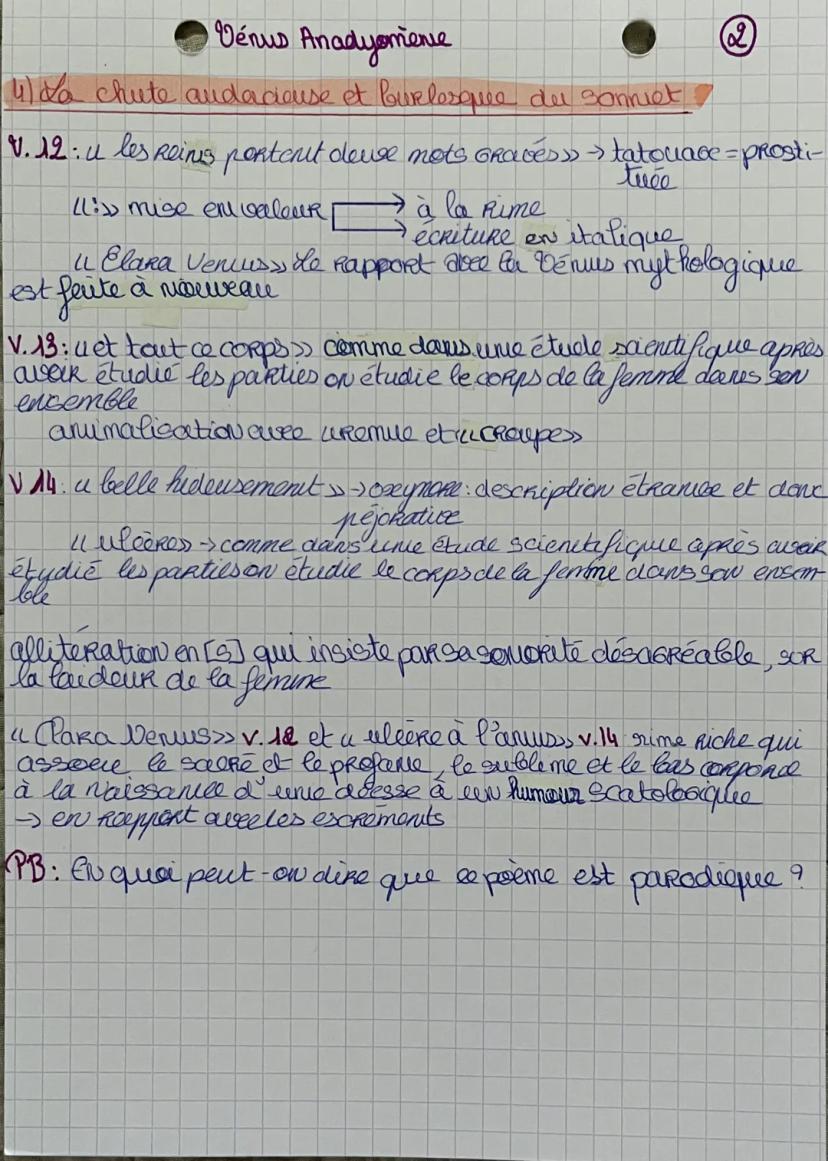 Vénus Anadyomène
2
4) La chute audacieuse et burlesque du sonnet
V.12: « les reins portent deux mots gravés » → tatouage = prosti-
tuée
« : » mise en valeur → à la rime
→ écriture en italique
« Clara Venus » le rapport avec la Vénus mythologique
est faite à nouveau
V.13: « et tout ce corps » comme dans une étude scientifique après
avoir étudié les parties on étudie le corps de la femme dans son
ensemble
animalisation avec « remue et « croupe »
V 14: « belle hideusement » → oxymore: description étrange et donc
péjorative
« ulcère » → comme dans une étude scientifique après avoir
étudié les parties on étudie le corps de la femme dans son ensem-
ble
allitération en [s] qui insiste par sa sonorité désagréable, sur
la laideur de la femme
« Clara Venus » v.12 et « ulcère à l'anus » v.14 rime riche qui
associe le sacré et le profane, le sublime et le bas corporel
à la naissance d'une déesse à un humour scatologique
→ en rapport avec les excréments
PB: En quoi peut-on dire que ce poème est parodique ?